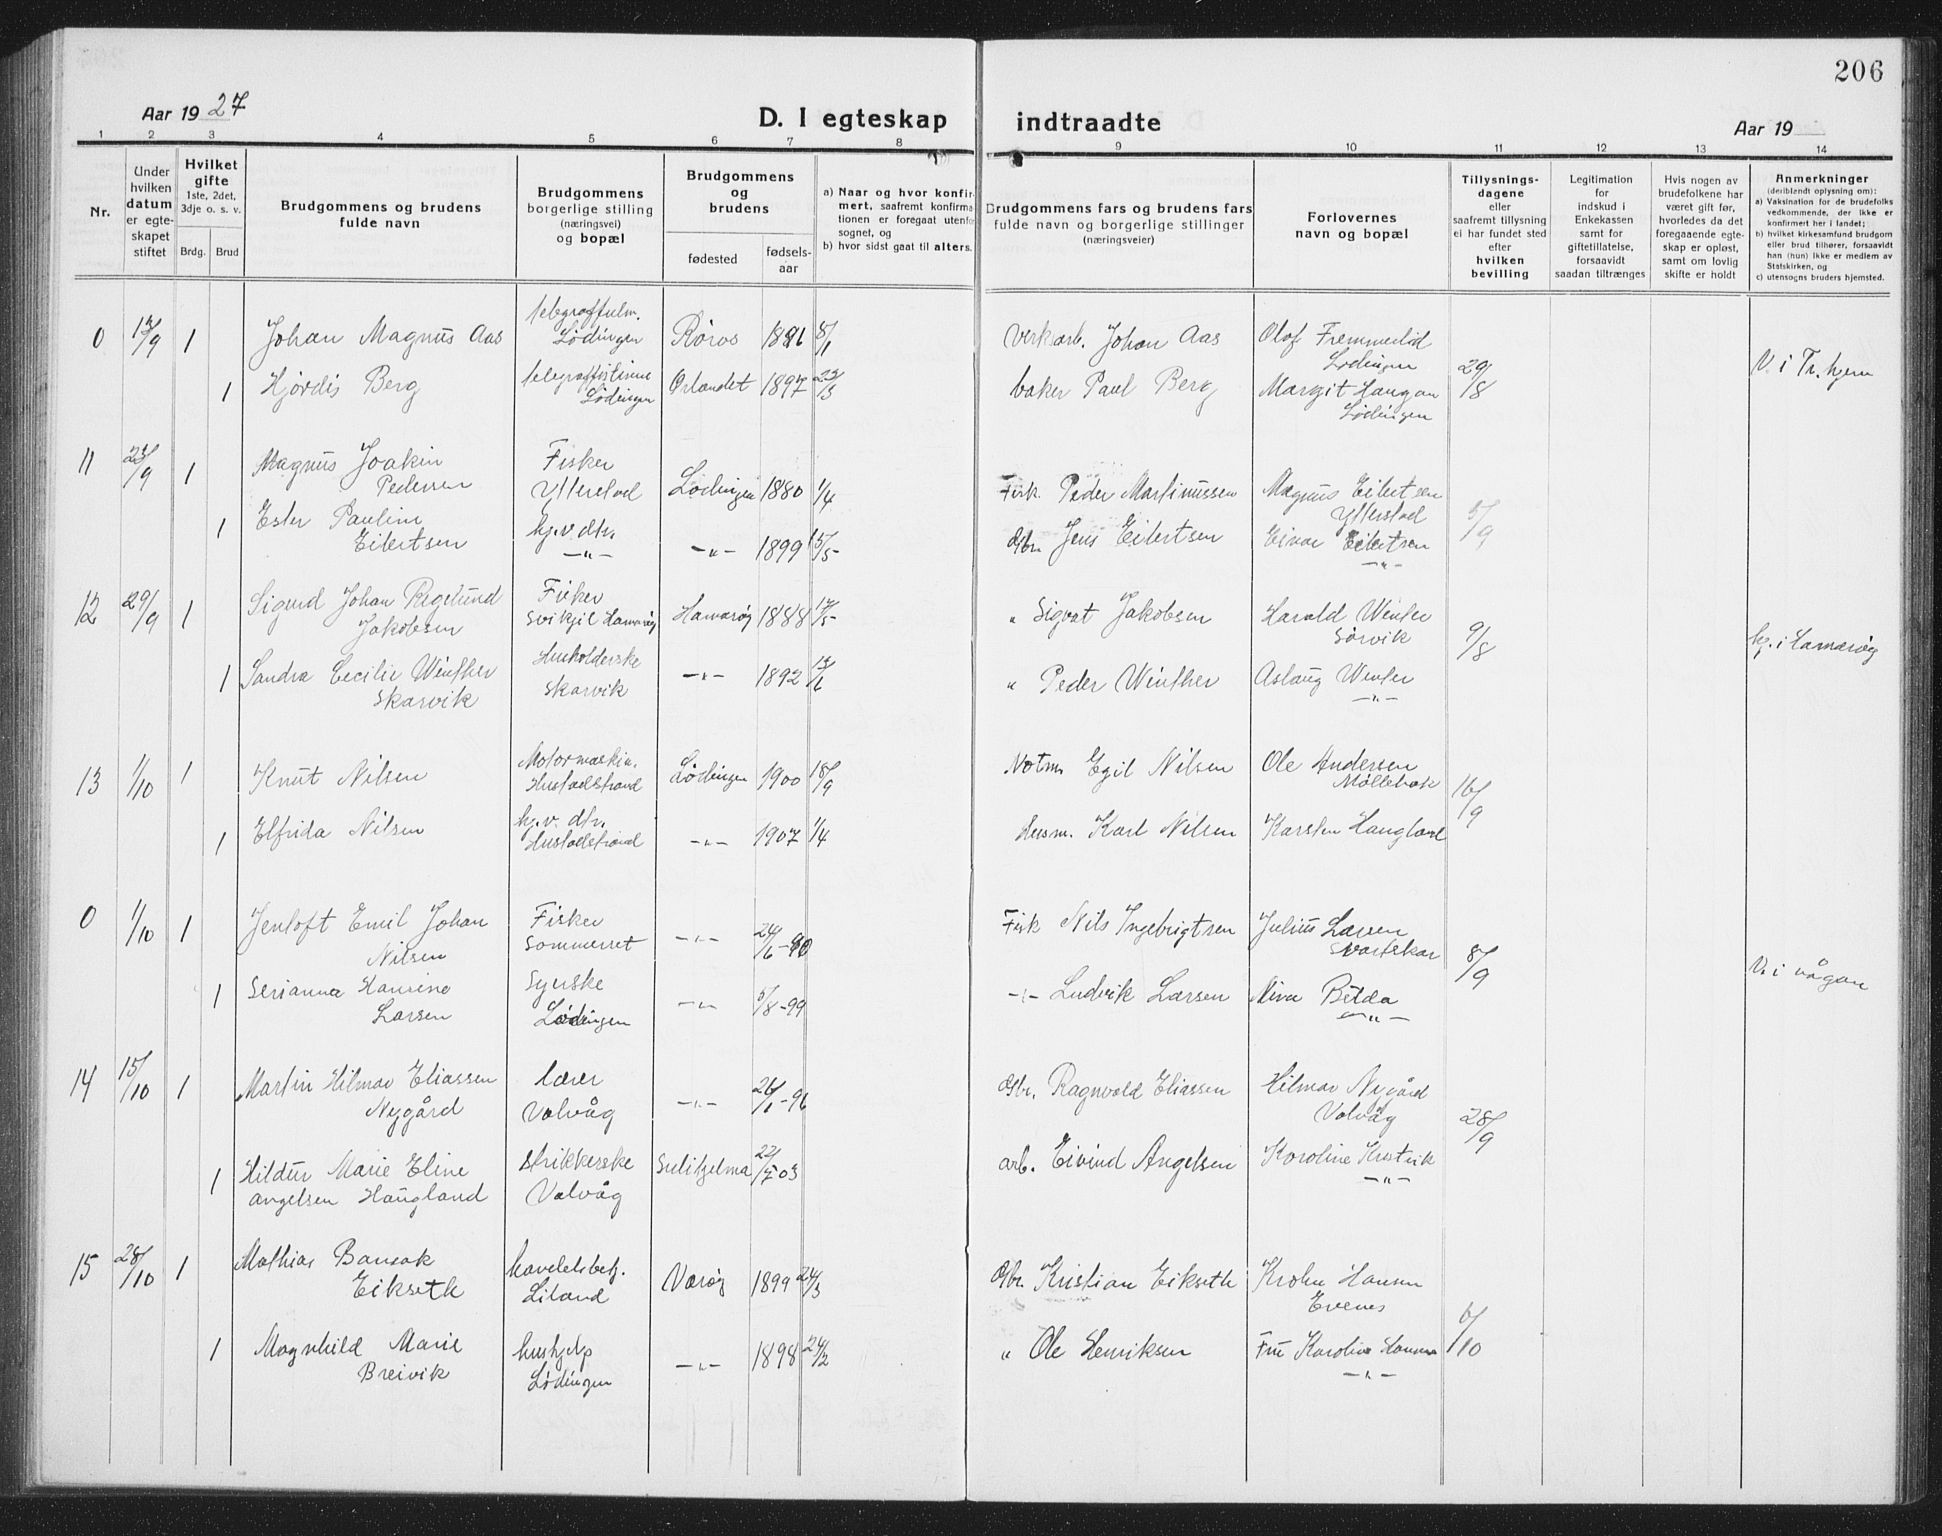 206
Aar 19 27
D. I egteskap indtraadte
Aar 19
1 2 3 4 5 6 7 8 9 10 11 12 13 14
Nr.
Under
hvilken
datum
er egte-
skapet
stiftet
Hvilket
gifte
1ste, 2det,
3dje o. s. v.
Brdg. Brud
Brudgommens og brudens
fulde navn
Brudgommens
borgerlige stilling
(næringsvei)
og bopæl
Brudgommens
og
brudens
fødested
fødsels-
aar
a) Naar og hvor konfir-
mert, saafremt konfirma-
tionen er foregaat utenfo
sognet, og
b) hvor sidst gaat til alters.
Brudgommens fars og brudens fars
fulde navn og borgerlige stillinger
(næringsveier)
Forlovernes
navn og bopæl
Tillysnings-
dagene
eller
saafremt tillysning
ei har fundet sted
efter
hvilken
bevilling
Legitimation
for
indskud i
Enkekassen
samt for
giftetillatelse,
forsaavidt
saadan tiltrænges
Hvis nogen av
brudefolkene har
været gift før,
hvorledes da det
foregaaende egte-
skap er opløst,
samt om lovlig
skifte er holdt
Anmerkninger
(deriblandt oplysning om):
a) Vaksination for de brudefolks
vedkommende, der ikke er
konfirmert her i landet;
b) hvilket kirkesamfund brudgom
eller brud tilhører, forsaavidt
han (hun) ikke er medlem av
Statskirken, og
c) utensogns bruders hjemsted.
0 1 Johan Magnus Aas
Lödingen Röros 8/1
Verksarb. Johan Aas Olaf Fremmerlid
Lödingen 29/8
V. i Tr.hjem
1 Hjördis Berg
Lödingen Örlandet 1897
baker Paul Berg Margit Haugan
Lödingen
11 23/9 1 Magnus Joakin
Pedersen
Fisker
Ytterstad Lödingen 1880 1/4
Fisk. Peder Martinussen Magnus Eilertsen
Ytterstad 5/9
1 Ester Pauline
Eilertsen
hj.v. dtr.
-"- -"- 1899 15/5
Gbr. Jens Eilertsen Einar Eilertsen
-"-
12 29/9 1 Sigurd Johan Regelund
Jakobsen
Fisker
Svikjil Hamaröy Hamaröy 1888 17/5
" Sigvat Jakobsen Harald Winter
Sörvik 9/8
hj. i Hamaröy
1 Sandra Cecilie Winther
Skarvik
Husholderske
Skarvik -"- 1892
" Peder Winther Aslaug Winter
-"-
13 1/10 1 Knut Nilsen
Motormaskin.
Husjordstrand Lödingen 1900 18/9
Notm. Egil Nilsen Ole Andersen
16/9
1 Elfrida Nilsen
hj.v. dtr.
-"- 1907 1/4
Husm. Karl Nilsen Karsten Haugland
0 1/10 1 Jentoft Emil Johan
Nilsen
Fisker
Sommerset -"-
Fisk Nils Ingebrigtsen Julius Larsen
Svartskar 8/9
V. i Vågan
1 Serianna Hansine
Larsen
Syerske
Lödingen -"- 5/8-99
-"- Ludvik Larsen
-"-
14 15/10 1 Martin Hilmar Eliassen
Nygård
lærer
Valvåg -"- 26/1-96
Gbr. Ragnvald Eliassen Hilmar Nygård
Valvåg 28/9
1 Hildur Marie Eline
Angelsen Haugland
Strikkerske
Valvåg Sulitjelma 03
arb. Eivind Angelsen Karoline
-"-
15 28/10 1 Mathias Bansak
Eikseth
handelsbetj.
Liland Væröy 1899 24/3
Gbr. Kristian Eikseth Krohn Hansen
Evenes 6/10
1 Magnhild Marie
Breivik
hushjelp
Lödingen -"- 1898 24/2
" Ole Henriksen Fru Karoline Hansen
-"-